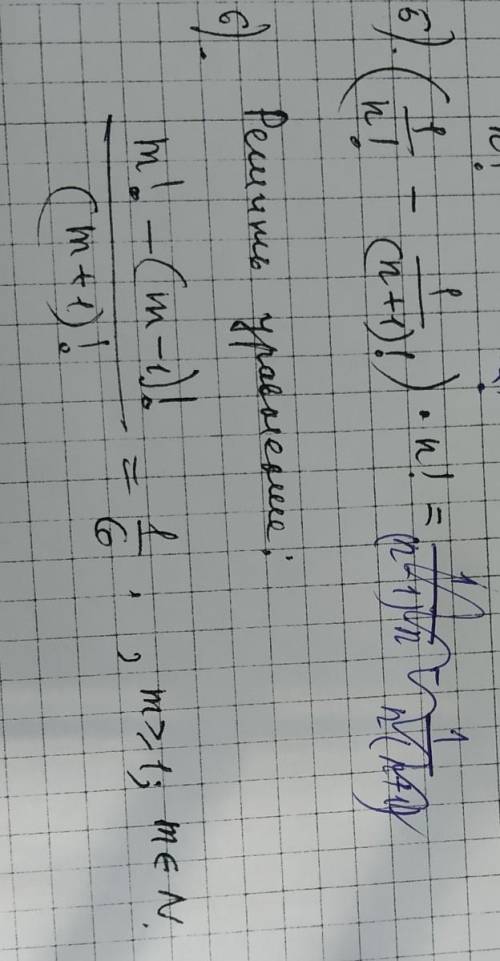 n!
5). (1/n! - 1/(n+1)!) · n! =
6). Решить уравнение:
(m! - (m-1)!)/(m+1)! = 1/6 , m⩾1; m∈N.